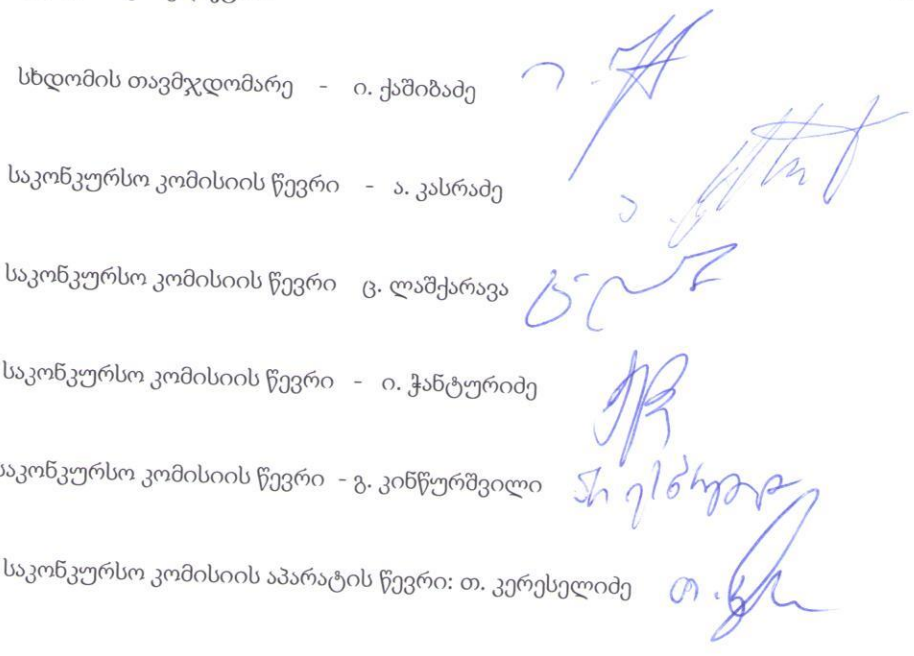 სხდომის თავმჯდომარე - ი. ქაშიბაძე
საკონკურსო კომისიის წევრი - ა. კასრაძე
საკონკურსო კომისიის წევრი ც. ლაშქარავა
საკონკურსო კომისიის წევრი - ი. ჭანტურიძე
საკონკურსო კომისიის წევრი - გ. კინწურშვილი
საკონკურსო კომისიის აპარატის წევრი: თ. კერესელიძე